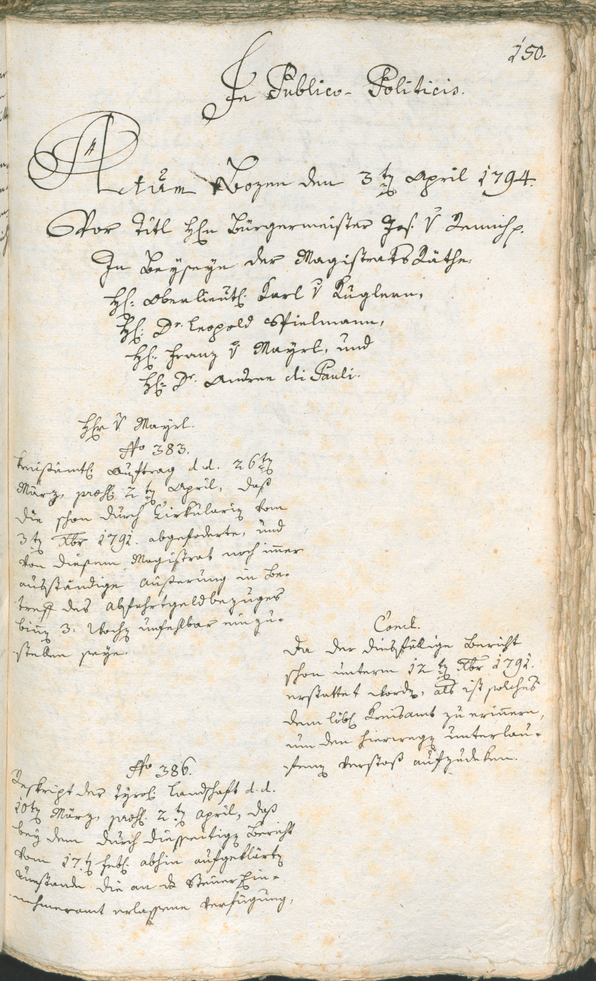 150.
In Publico-Politicis.
Actum Bozen den 3tn April 1794.
Vor Titl Hhn Bürgermeister Jos. v Remich p.
In Beyseyn der Magistrats Räthe
Hh: Oberlieut: Karl v Kuglern,
Hh: Dr. Leopold Spielmann,
Hh: Franz v Mayrl, und
Hh: Dr. Andree di Pauli.
Hhr v Mayrl.
No 383.
Kreisämtl: Auftrag d. d. 26tn
März, prs. 2tn April, daß
die schon durch Zirkularin vom
3tn Xbr 1792. abgeforderte, und
von diesem Magistrat noch imer
ausständige Äußerung in Be-
treff des Abfahrtgeldbezuges
binn 3. Wochn unfehlbar einzu-
stellen seye.
Concl.
Da der diesfällige Bericht
schon unterm 12tn Xbr 1792.
erstattet wordn, als ist solches
dem löbl Kreisamt zu erinnern,
um den hierwegn unterlau-
fenn Verstoß aufzudeken.
No 386.
Reskript der Tyrol: Landschaft d. d.
10tn März, prs. 2tn April, daß
bey dem durch diesseitign Bericht
vom 17tn Feb: abhin aufgeklärtn
Umstande die an das Steuereinn-
nehmeramt erlassene Verfügung,